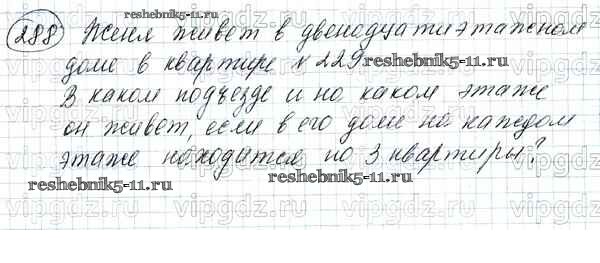 reshebnik5-11.ru
288 Женя живет в двенадцатиэтажном
доме в квартире № 229.
reshebnik5-11.ru
В каком подъезде и на каком этаже
он живет, если в его доме на каждом
этаже находится по 3 квартиры?
reshebnik5-11.ru reshebnik5-11.ru
vipgdz.ru vipgdz.ru vipgdz.ru